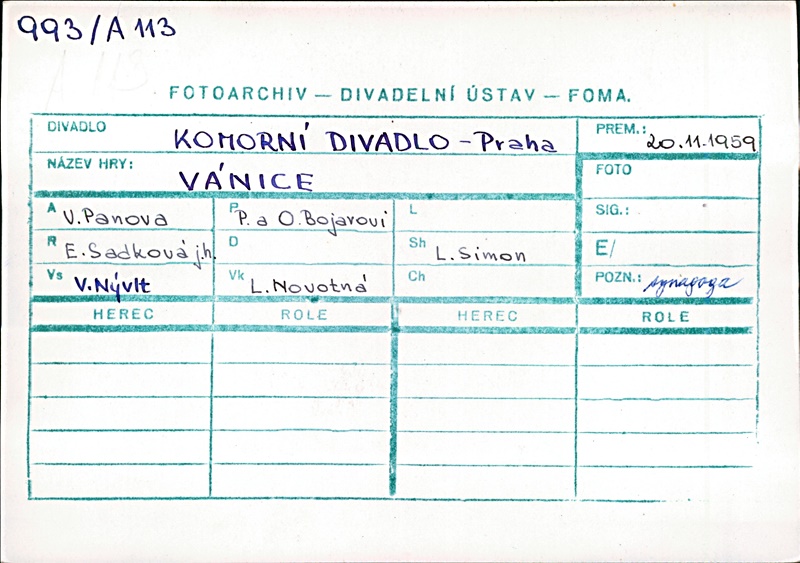 993/A 113
FOTOARCHIV — DIVADELNÍ ÚSTAV — FOMA.
DIVADLO KOMORNÍ DIVADLO - Praha PREM.: 20.11.1959
NÁZEV HRY: VÁNICE FOTO
A V. Panova P P. a O. Bojarovi L SIG.:
R E. Sadková j.h. D Sh L. Simon E/
Vs V. Nývlt Vk L. Novotná Ch POZN.: synagoga
HEREC ROLE HEREC ROLE